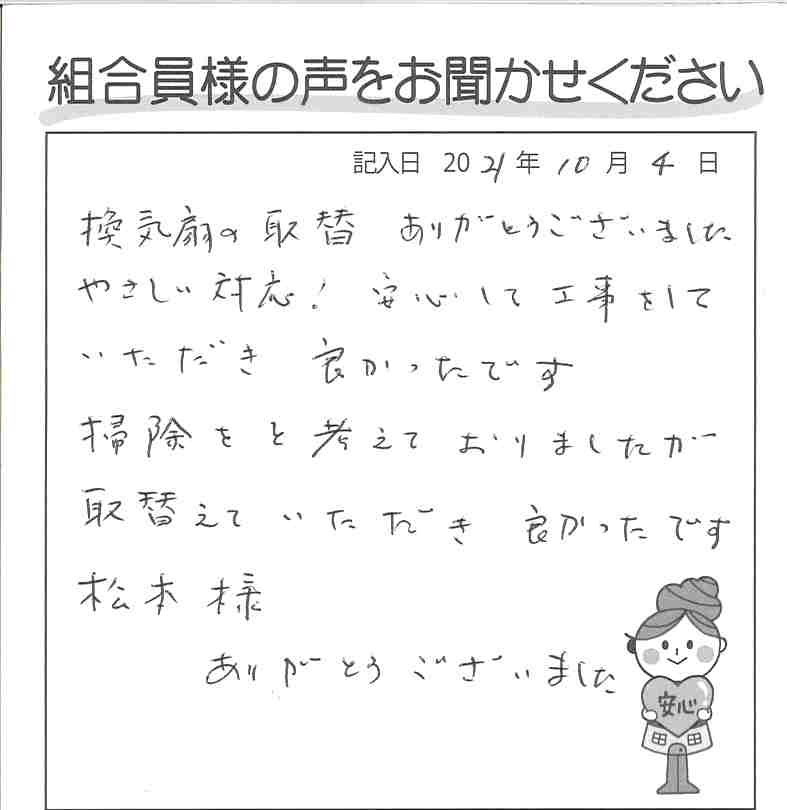 組合員様の声をお聞かせください
記入日 2021年10月4日
換気扇の取替 ありがとうございました
やさしい対応! 安心して工事をして
いただき 良かったです
掃除をと考えておりましたが
取替えていただき 良かったです
松本様
ありがとうございました
安心